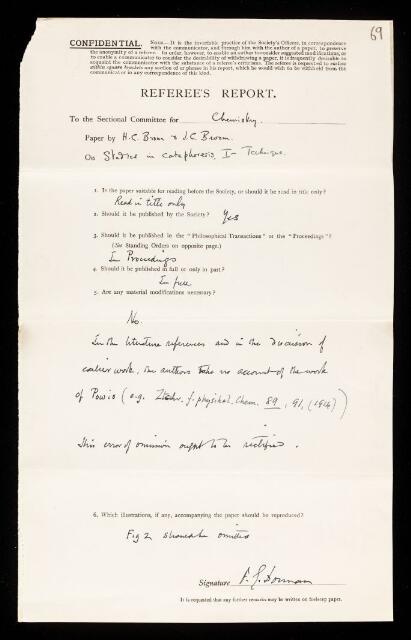 69
CONFIDENTIAL. NOTE.—It is the invariable practice of the Society's Officers, in correspondence
with the communicator, and through him with the author of a paper, to preserve
the anonymity of a referee. In order, however, to enable an author to consider suggested modifications, or
to enable a communicator to consider the desirability of withdrawing a paper, it is frequently desirable to
acquaint the communicator with the substance of a referee's criticisms. The referee is requested to enclose
within square brackets any section of or phrase in his report, which he would wish to be withheld from the
communicator in any correspondence of this kind.
REFEREE'S REPORT.
To the Sectional Committee for Chemistry.
Paper by H.C. Brown & J.C. Broom.
On Studies in cataphoresis, I– Technique.
1. Is the paper suitable for reading before the Society, or should it be read in title only?
Read in title only
2. Should it be published by the Society? Yes
3. Should it be published in the "Philosophical Transactions" or the "Proceedings"?
(See Standing Orders on opposite page.)
In Proceedings
4. Should it be published in full or only in part?
In full
5. Are any material modifications necessary?
No.
In the literature references and in the discussion of
earlier work, the authors take no account of the work
of Powis (e.g. Zeitschr. f. physikal. Chem. 89, 91, (1914))
This error of omission ought to be rectified.
6. Which illustrations, if any, accompanying the paper should be reproduced?
Fig 2 should be omitted
Signature
It is requested that any further remarks may be written on foolscap paper.